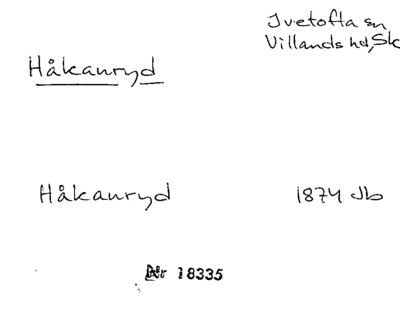 Ivetofta sn
Villands hd, Sk
Håkanryd
Håkanryd 1874 Jb
Nr 18335